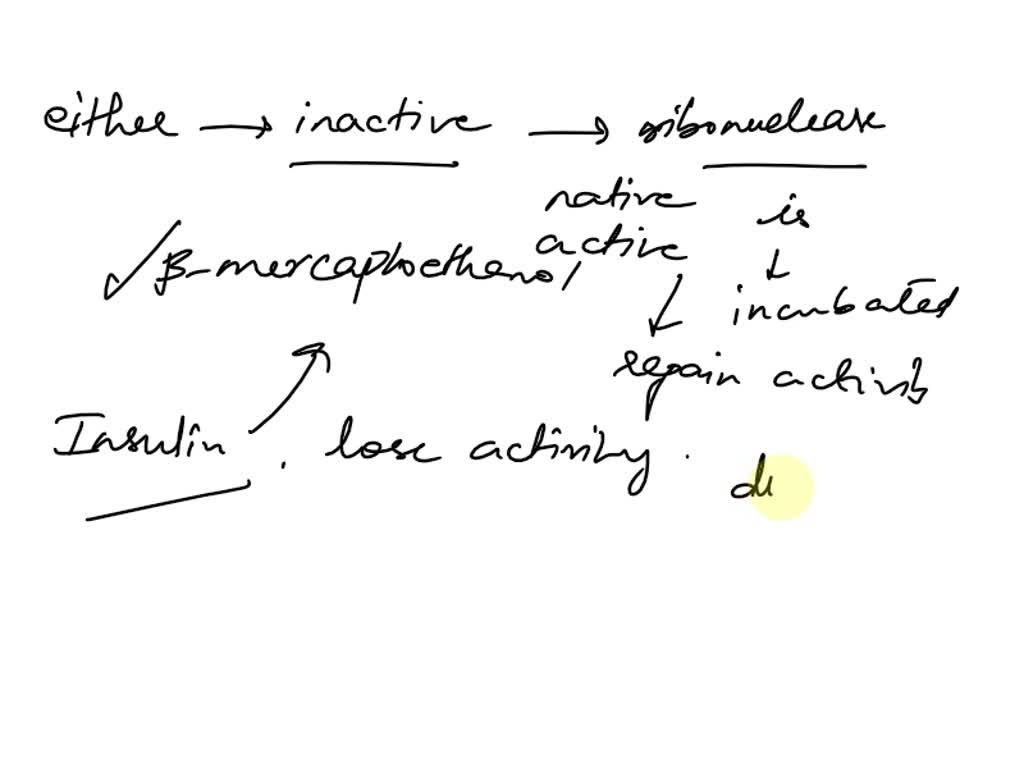 either → inactive → ribonuclease
native is
✓ β-mercaptoethanol active ↓
incubated
regain activity
Insulin . lose activity .
di